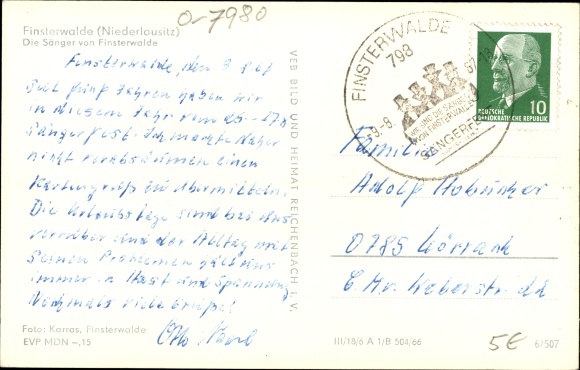 O-7980
Finsterwalde (Niederlausitz)
Die Sänger von Finsterwalde
Finsterwalde, den
Seit fünf Jahren haben wir
in diesem Jahr vom
Sängerfest. Ich möchte daher
nicht versäumen einen
Kartengruß zu übermitteln.
Die Urlaubstage sind bei uns
vorüber und der Alltag mit
seinen Problemen hält uns
immer in Hast und Spannung.
Nochmals viele Grüße!
Otto
Foto: Karras, Finsterwalde
EVP MDN –,15
VEB BILD UND HEIMAT REICHENBACH i. V.
FINSTERWALDE
798
-9.-8. 67-18
WIR SIND DIE SÄNGER
VON FINSTERWALDE
SÄNGERFEST
DEUTSCHE
DEMOKRATISCHE REPUBLIK
10
Familie
Adolf
0785 Lörrach
III/18/6 A 1/B 504/66
5€
6/507